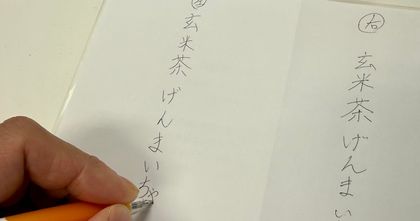 右
玄米茶げんまい
玄米茶 げんまいちゃ